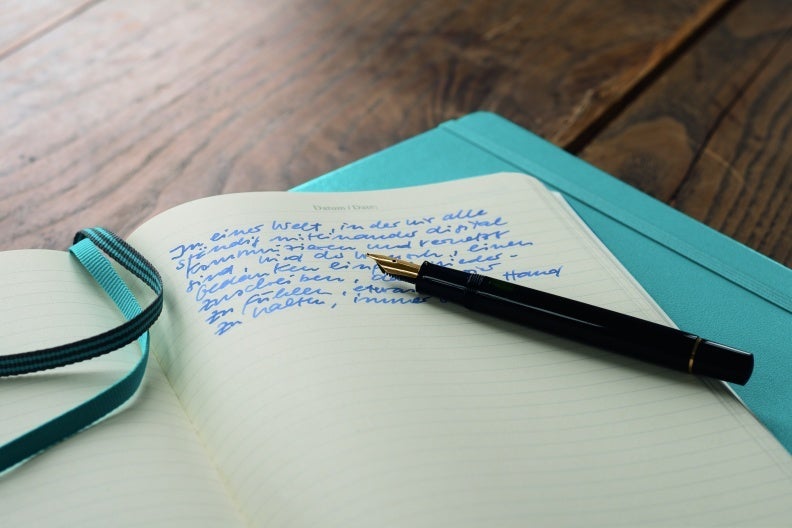 Datum / Date:
In einer Welt, in der wir alle
ständig miteinander digital
kommunizieren und vernetzt
sind, wird der einen
Gedanken nieder-
zuschreiben, Hand
zu fühlen, etwas
zu halten, immer